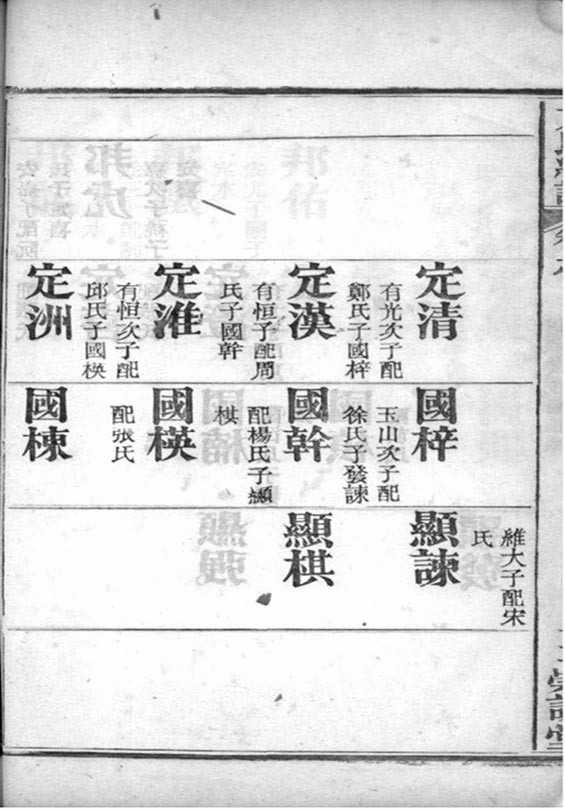 定清
有光次子配
鄭氏子國梓
定漢
有恒子配周
氏子國幹
定淮
有恒次子配
邱氏子國楧
定洲
國梓
玉山次子配
徐氏子發諫
國幹
配楊氏子顯
棋
國楧
配張氏
國棟
維大子配宋
氏
顯諫
顯棋